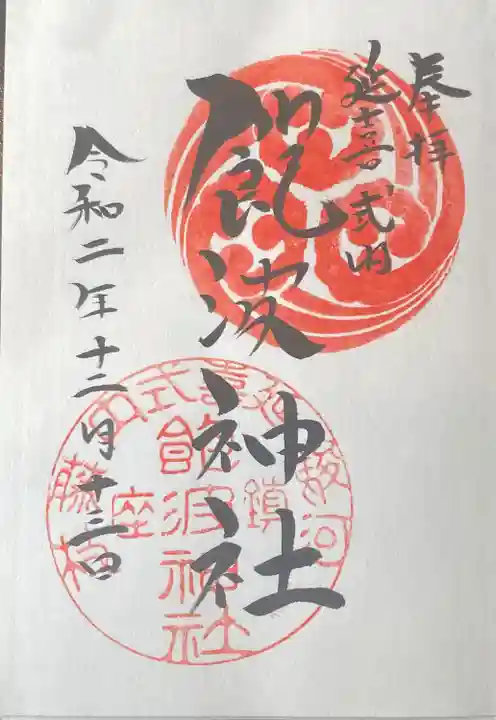 奉拝
延喜式内
飽波神社
令和二年十二月十三日
延喜式内
駿河
藤枝
鎮座
飽波神社